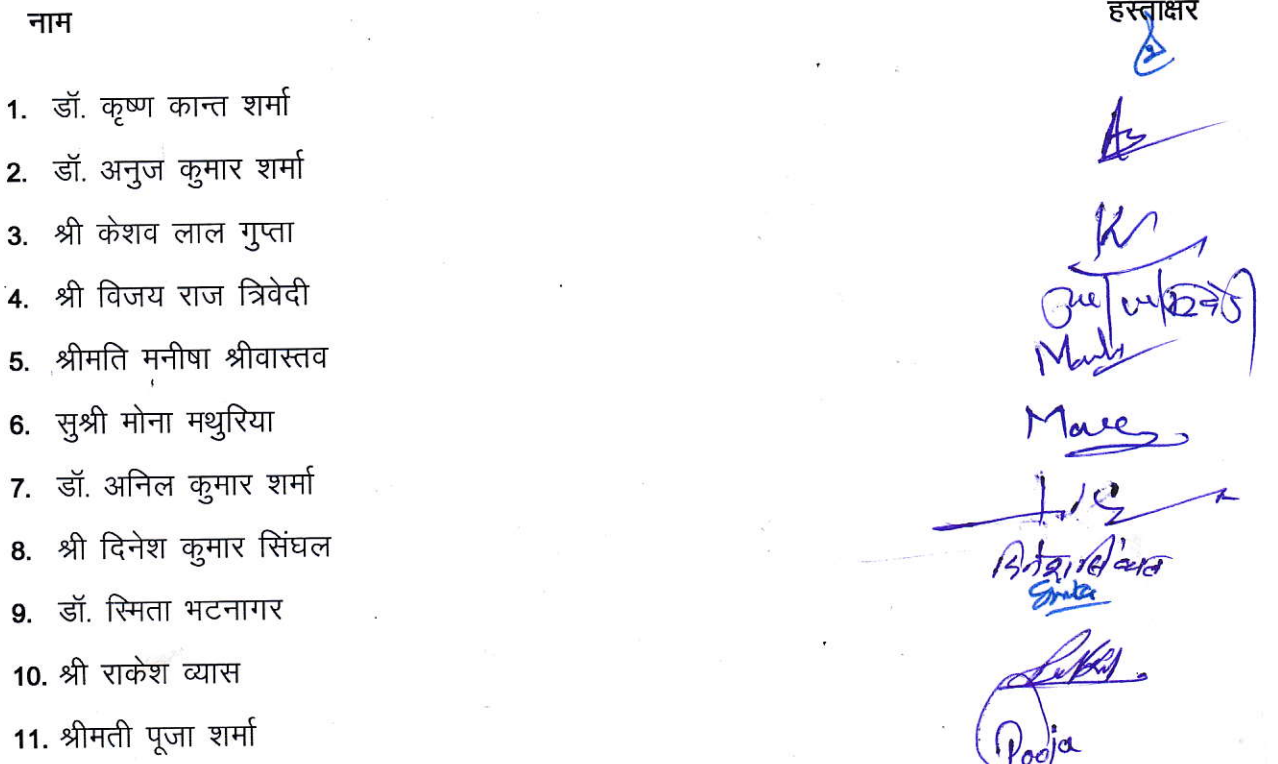 नाम हस्ताक्षर
1. डॉ. कृष्ण कान्त शर्मा
2. डॉ. अनुज कुमार शर्मा
3. श्री केशव लाल गुप्ता
4. श्री विजय राज त्रिवेदी
5. श्रीमति मनीषा श्रीवास्तव
6. सुश्री मोना मथुरिया
7. डॉ. अनिल कुमार शर्मा
8. श्री दिनेश कुमार सिंघल
9. डॉ. स्मिता भटनागर
10. श्री राकेश व्यास
11. श्रीमती पूजा शर्मा Pooja